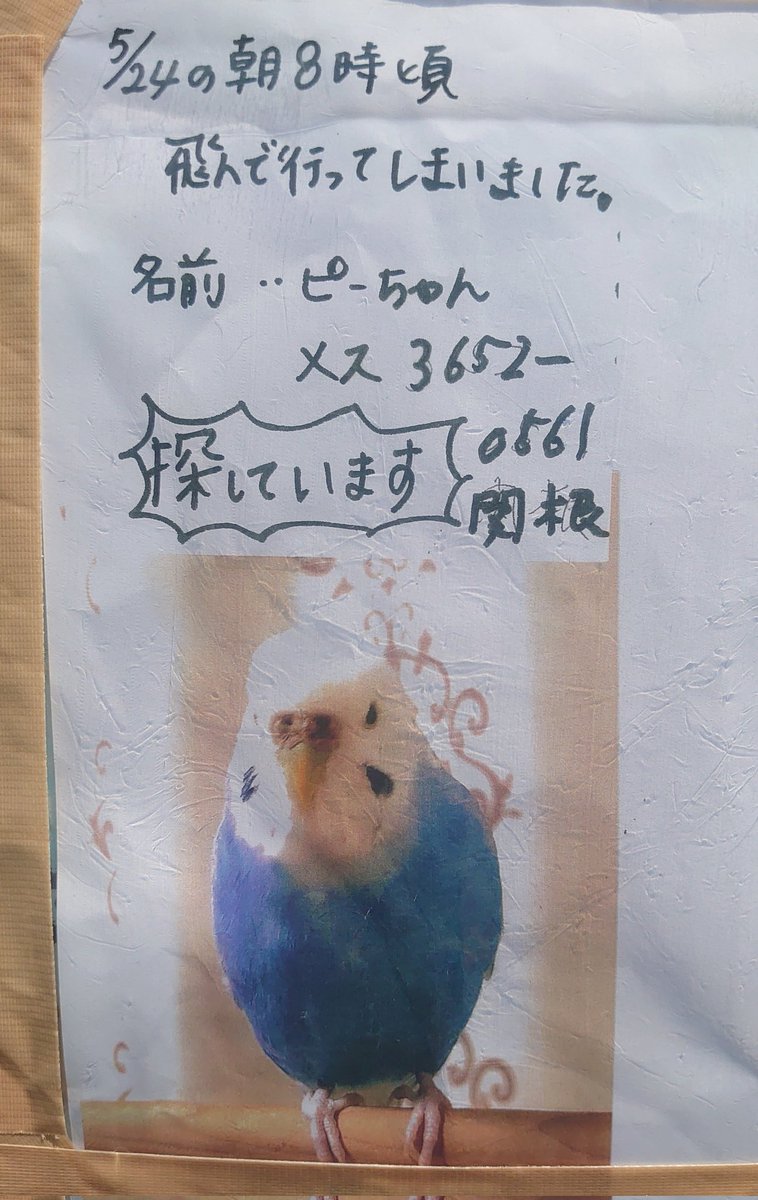 5/24の朝8時頃
飛んで行ってしまいました。
名前‥ピーちゃん
メス 3652ー
0561
探しています
関根